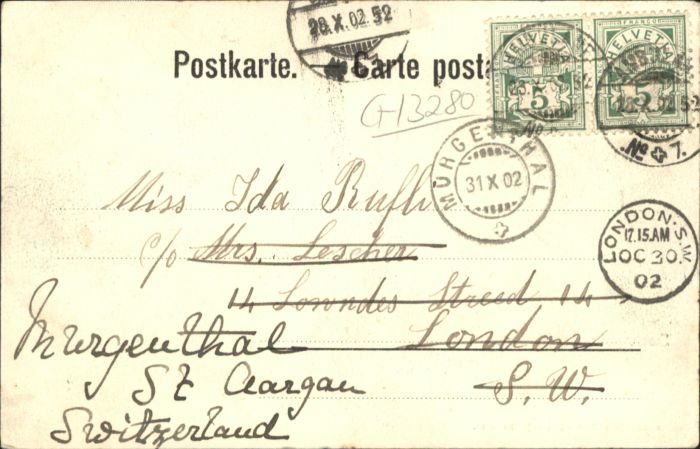 28.X.02.52
Postkarte. Carte posta
FRANCO FRANCO
HELVETIA HELVETIA
5 5
28.X.02.52
No 7.
G-13280
MURGENTHAL
31 X 02
Miss Ida Rufli
c/o Mrs. Lescher
14 Lowndes Street 14
London
S. W.
LONDON. S.W.
12.15.AM
OC 30
02
Murgenthal
St Aargau
Switzerland